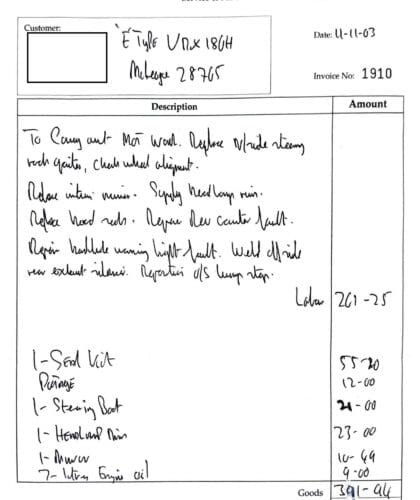 Customer:
'E Type UMX 186H
Mileage 28765
Date: 4-11-03
Invoice No: 1910
Description
Amount
To Carry out MoT work. Replace N/side steering
rack gaiter, check wheel alignment.
Replace interior mirror. Supply headlamp rim.
Replace hood rods. Repair Rev counter fault.
Repair handbrake warning light fault. Weld offside
rear exhaust silencer. Reposition o/s bump stop.
Labour 261-25
1- Seal Kit 55-20
Postage 12-00
1- Steering Boot 21-00
1- Headlamp Rim 23-00
1- Mirror 10-49
7- Litres Engine oil 9-00
Goods 391-94